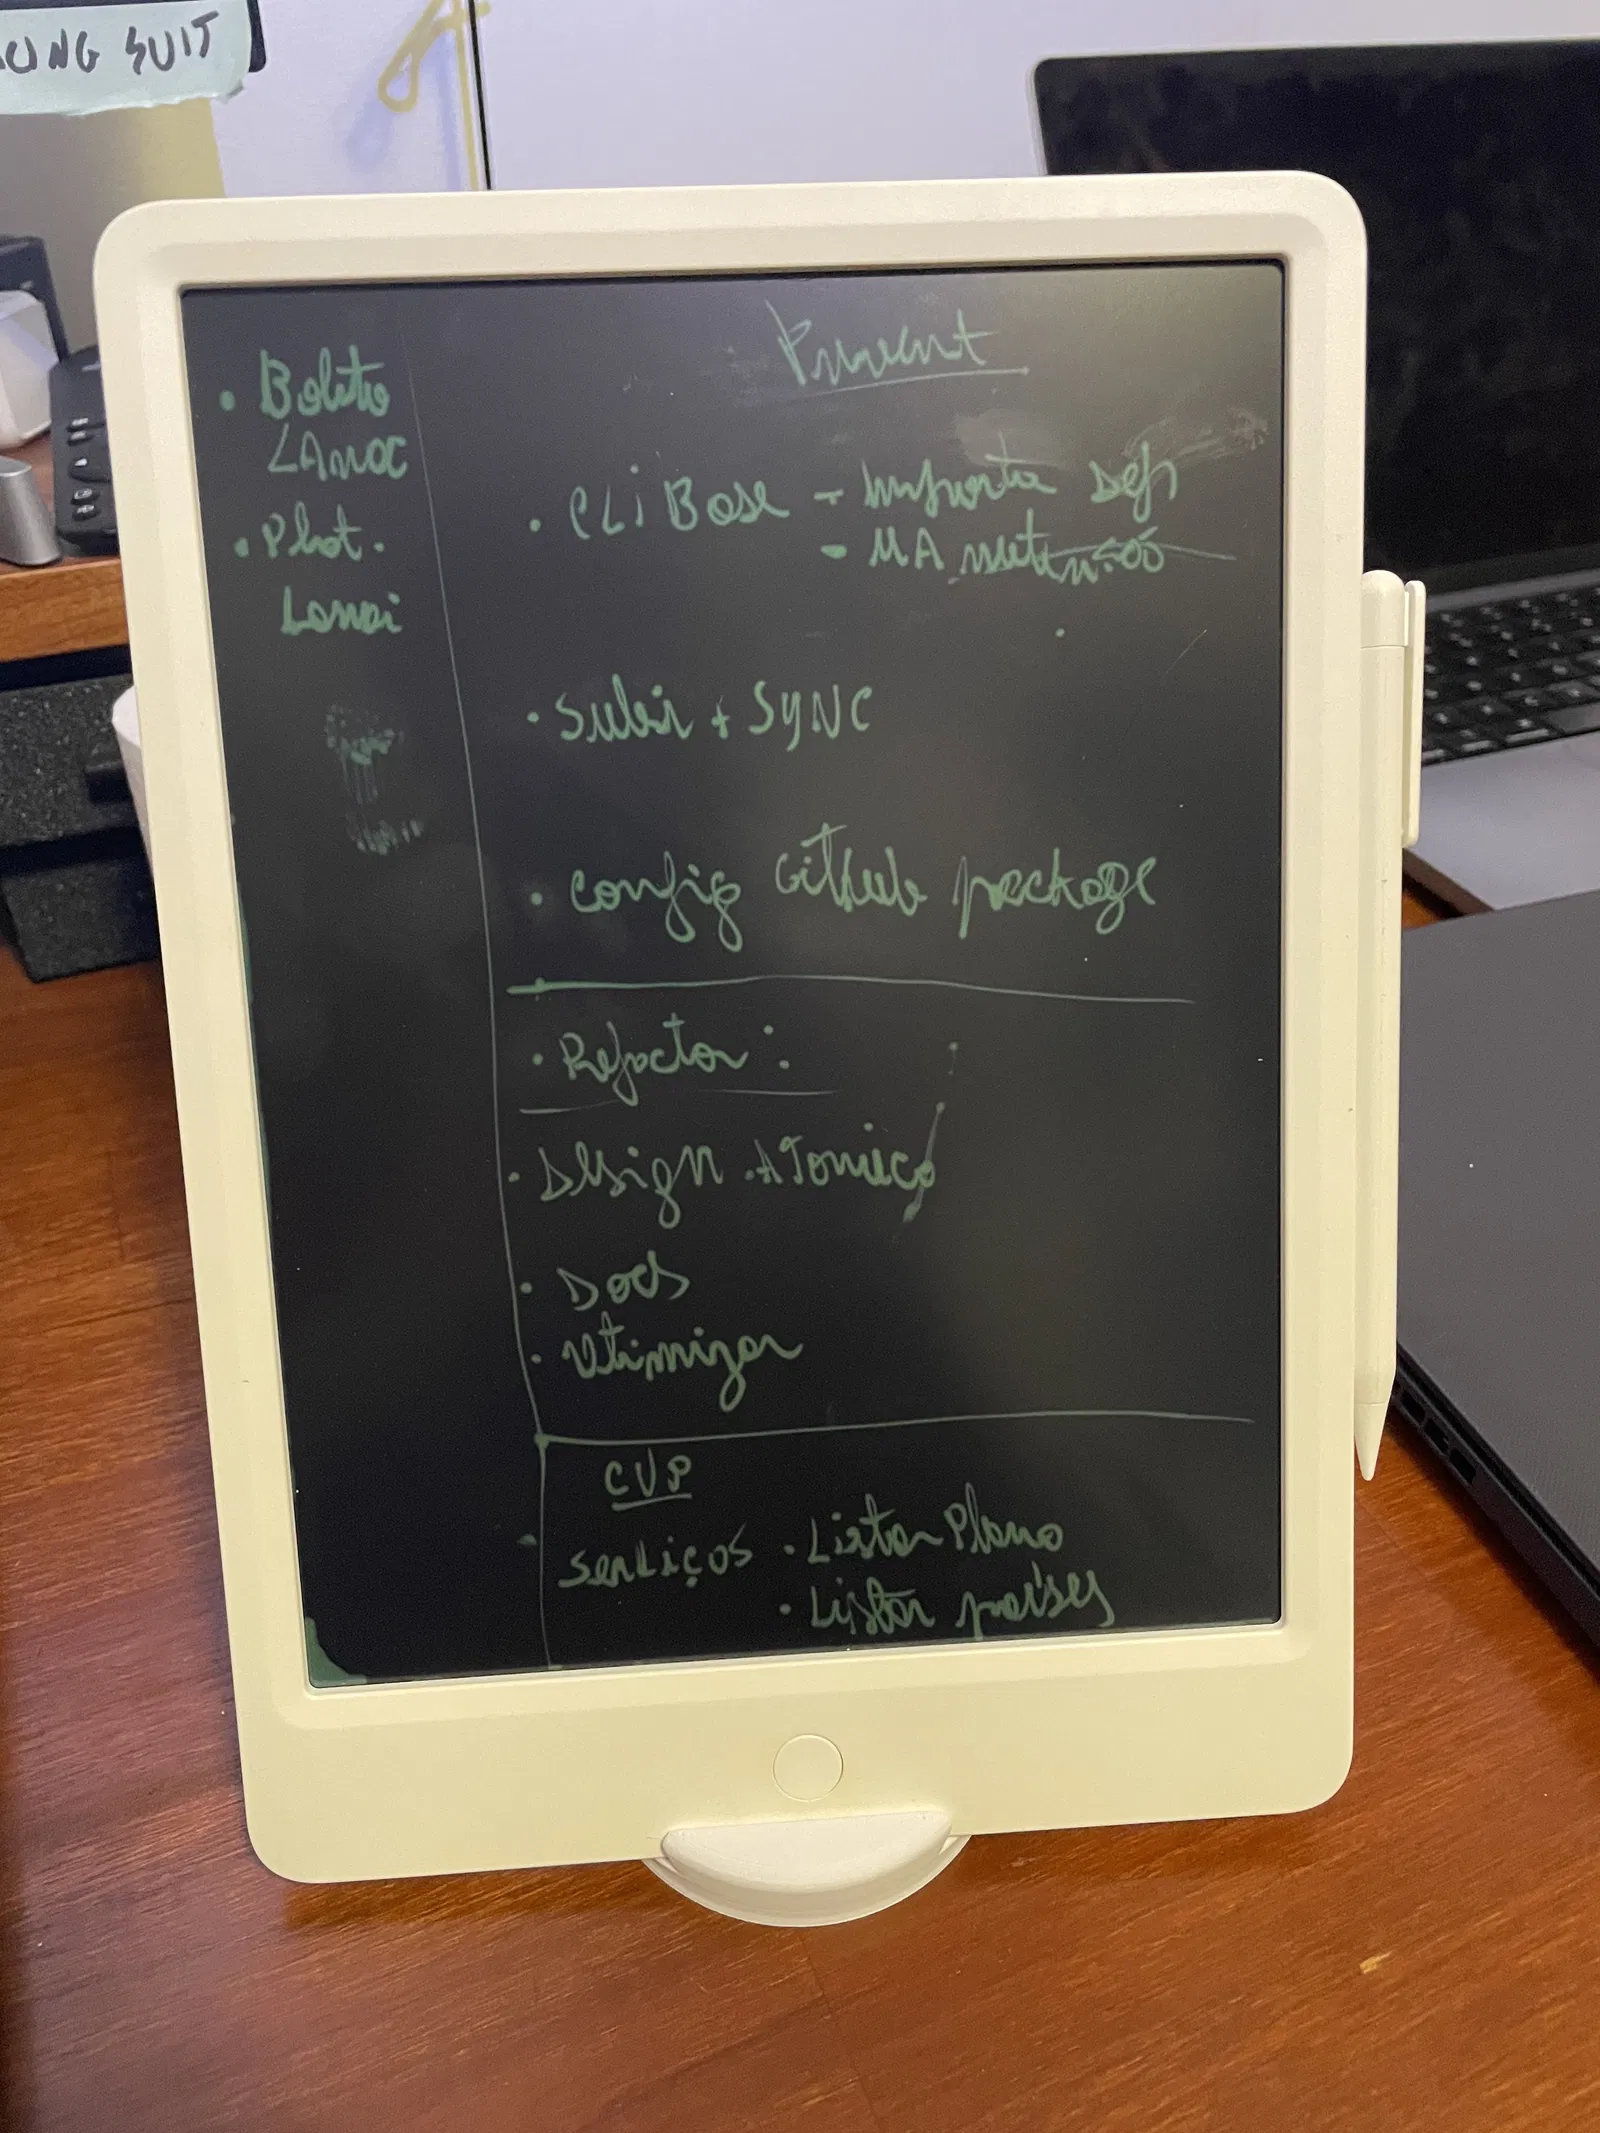 UNG SUIT
• Boleto
• Phot.
• CLi Base - Importa
- MA
• Subir + SYNC
• Config Github package
• Refactor :
• Design Atomico
• Docs
• Utimizar
CVP
Serviços • Listar Plano
• Listar países